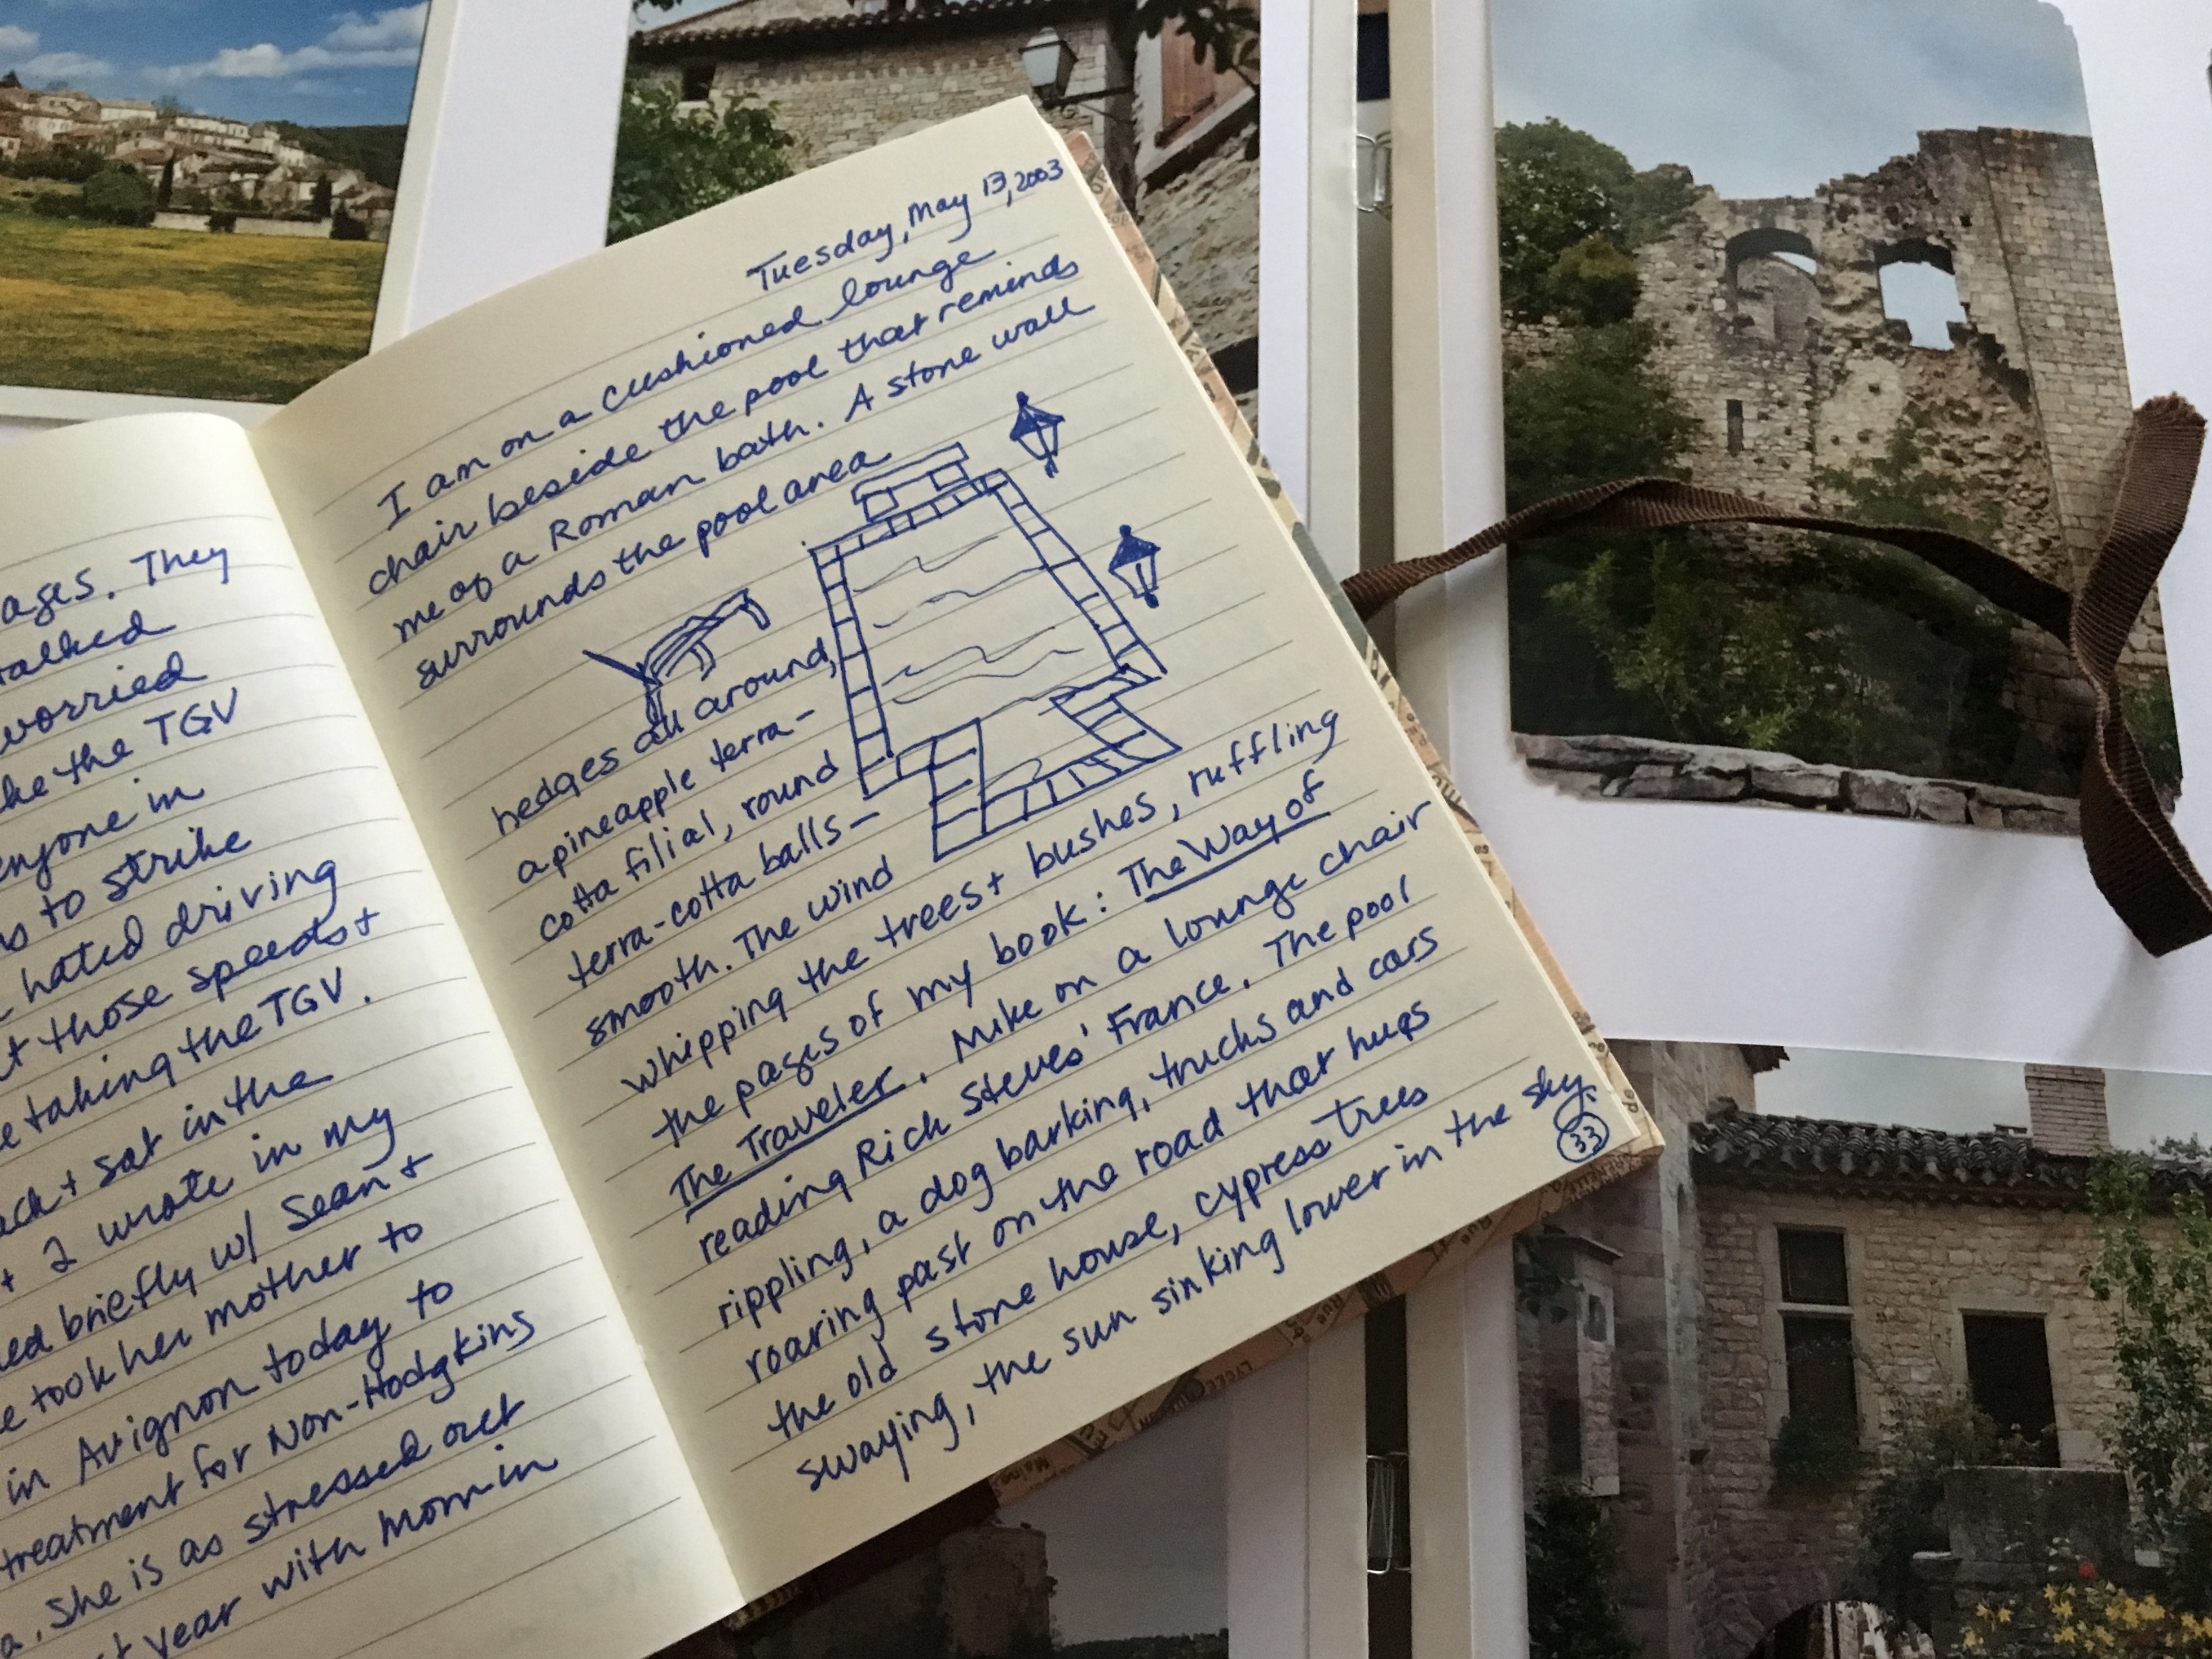 ages. They
talked
worried
ke the TGV
enyone in
ns to strike
hated driving
t those speeds +
e taking the TGV.
ack + sat in the
+ I wrote in my
ed briefly w/ Sean +
e took her mother to
in Avignon today to
treatment for Non-Hodgkins
a. She is as stressed out
st year with Mom in
Tuesday, May 13, 2003
I am on a cushioned lounge
chair beside the pool that reminds
me of a Roman bath. A stone wall
surrounds the pool area
hedges all around,
a pineapple terra-
cotta filial, round
terra-cotta balls—
smooth. The wind
whipping the trees + bushes, ruffling
the pages of my book: The Way of
The Traveler. Mike on a lounge chair
reading Rick Steves' France. The pool
rippling, a dog barking, trucks and cars
roaring past on the road that hugs
the old stone house, cypress trees
swaying, the sun sinking lower in the sky.
33